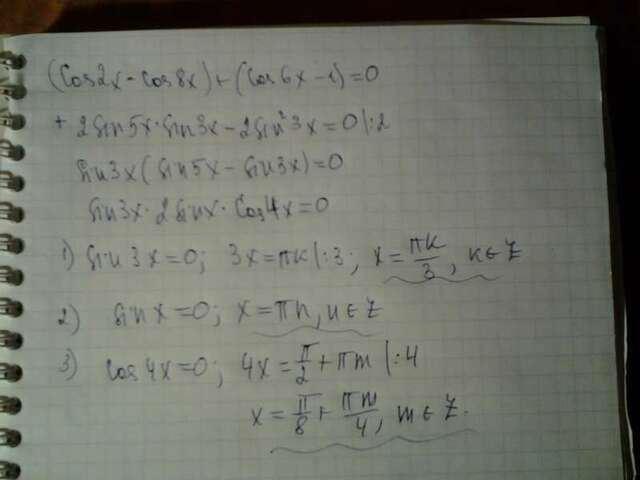 (Cos2x - cos8x) + (Cos6x - 1) = 0
+ 2sin5x · sin3x - 2sin²3x = 0 |:2
sin3x (sin5x - sin3x) = 0
sin3x · 2sinx · Cos4x = 0
1) sin3x = 0; 3x = πk |:3; x = πk/3, k ∈ Z
2) sinx = 0; x = πn, n ∈ Z
3) cos4x = 0; 4x = π/2 + πm |:4
x = π/8 + πm/4, m ∈ Z.